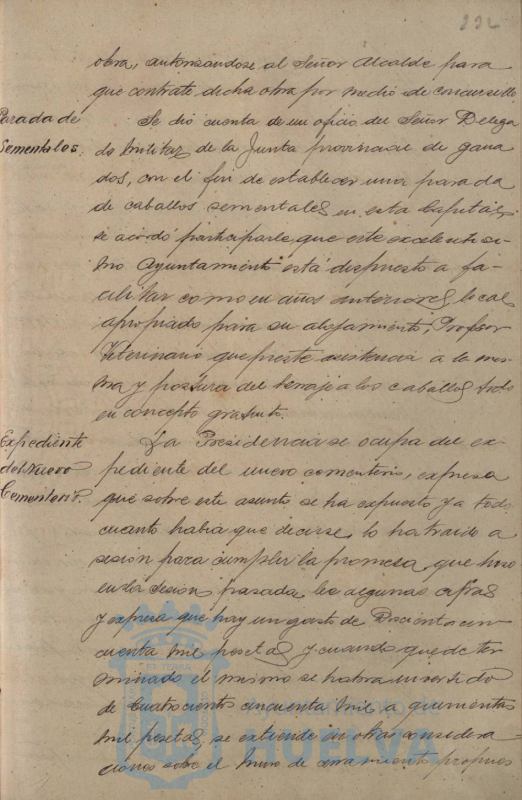 232
obra, autorizandose al Señor Alcalde para
que contrate dicha obra por medio de concursillo
Parada de
Sementales.
Se dió cuenta de un oficio del Señor Delega
do Militar de la Junta provincial de gana
dos, con el fin de establecer una parada
de caballos sementales en esta Capital,
se acordó participarle que este excelentisi-
mo Ayuntamiento está dispuesto a fa-
cilitar como en años anteriores local
apropiado para su alojamiento, Profesor
Veterinario que preste asistencia a la mis-
ma y postura del herraje a los caballos todo
en concepto gratuito.
Expediente
del Nuevo
Cementerio.
La Presidencia se ocupa del ex-
pediente del nuevo cementerio, expresa
que sobre este asunto se ha expuesto ya todo
cuanto habia que decirse, lo ha traido a
sesión para cumplir la promesa que hizo
en la sesion pasada, lee algunas cifras
y expresa que hay un gasto de Doscientas cin-
cuenta mil pesetas y cuando quede ter
minado el mismo se habra invertido
de Cuatrocientas cincuenta mil a quinientas
mil pesetas, se extiende en otras considera-
ciones sobre el muro de cerramiento propues
Ayuntamiento de
HUELVA